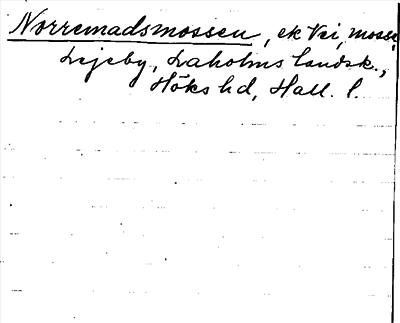 Norremadsmossen, ek Vi, mosse,
Lejeby, Laholms landsk.,
Höks hd, Hall. l.